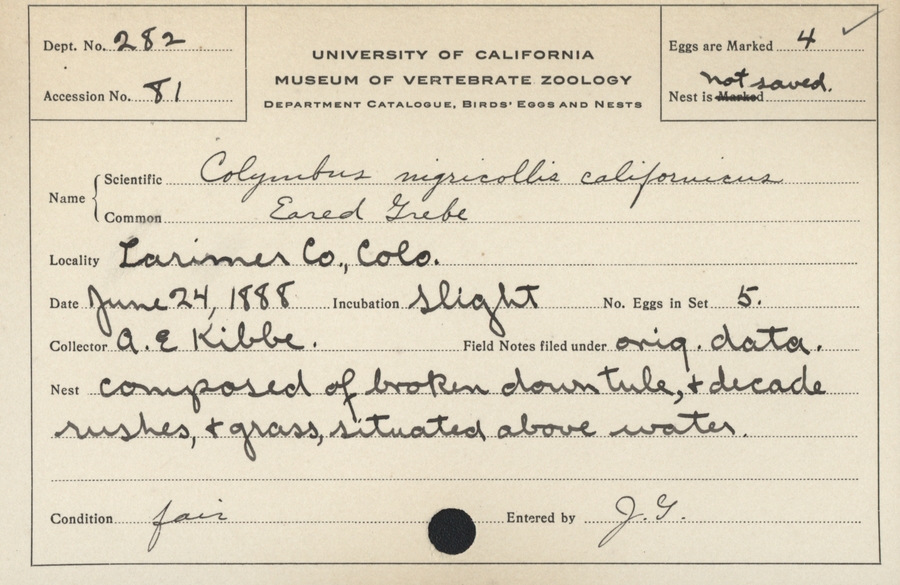 Dept. No. 282
Accession No. 81
UNIVERSITY OF CALIFORNIA
MUSEUM OF VERTEBRATE ZOOLOGY
DEPARTMENT CATALOGUE, BIRDS' EGGS AND NESTS
Eggs are Marked 4 ✓
not saved.
Nest is Marked
Name { Scientific Colymbus nigricollis californicus
Common Eared Grebe
Locality Larimer Co., Colo.
Date June 24, 1888 Incubation slight No. Eggs in Set 5.
Collector A. E Kibbe. Field Notes filed under orig. data.
Nest composed of broken down tule, & decade
rushes, & grass, situated above water.
Condition fair Entered by J. G.